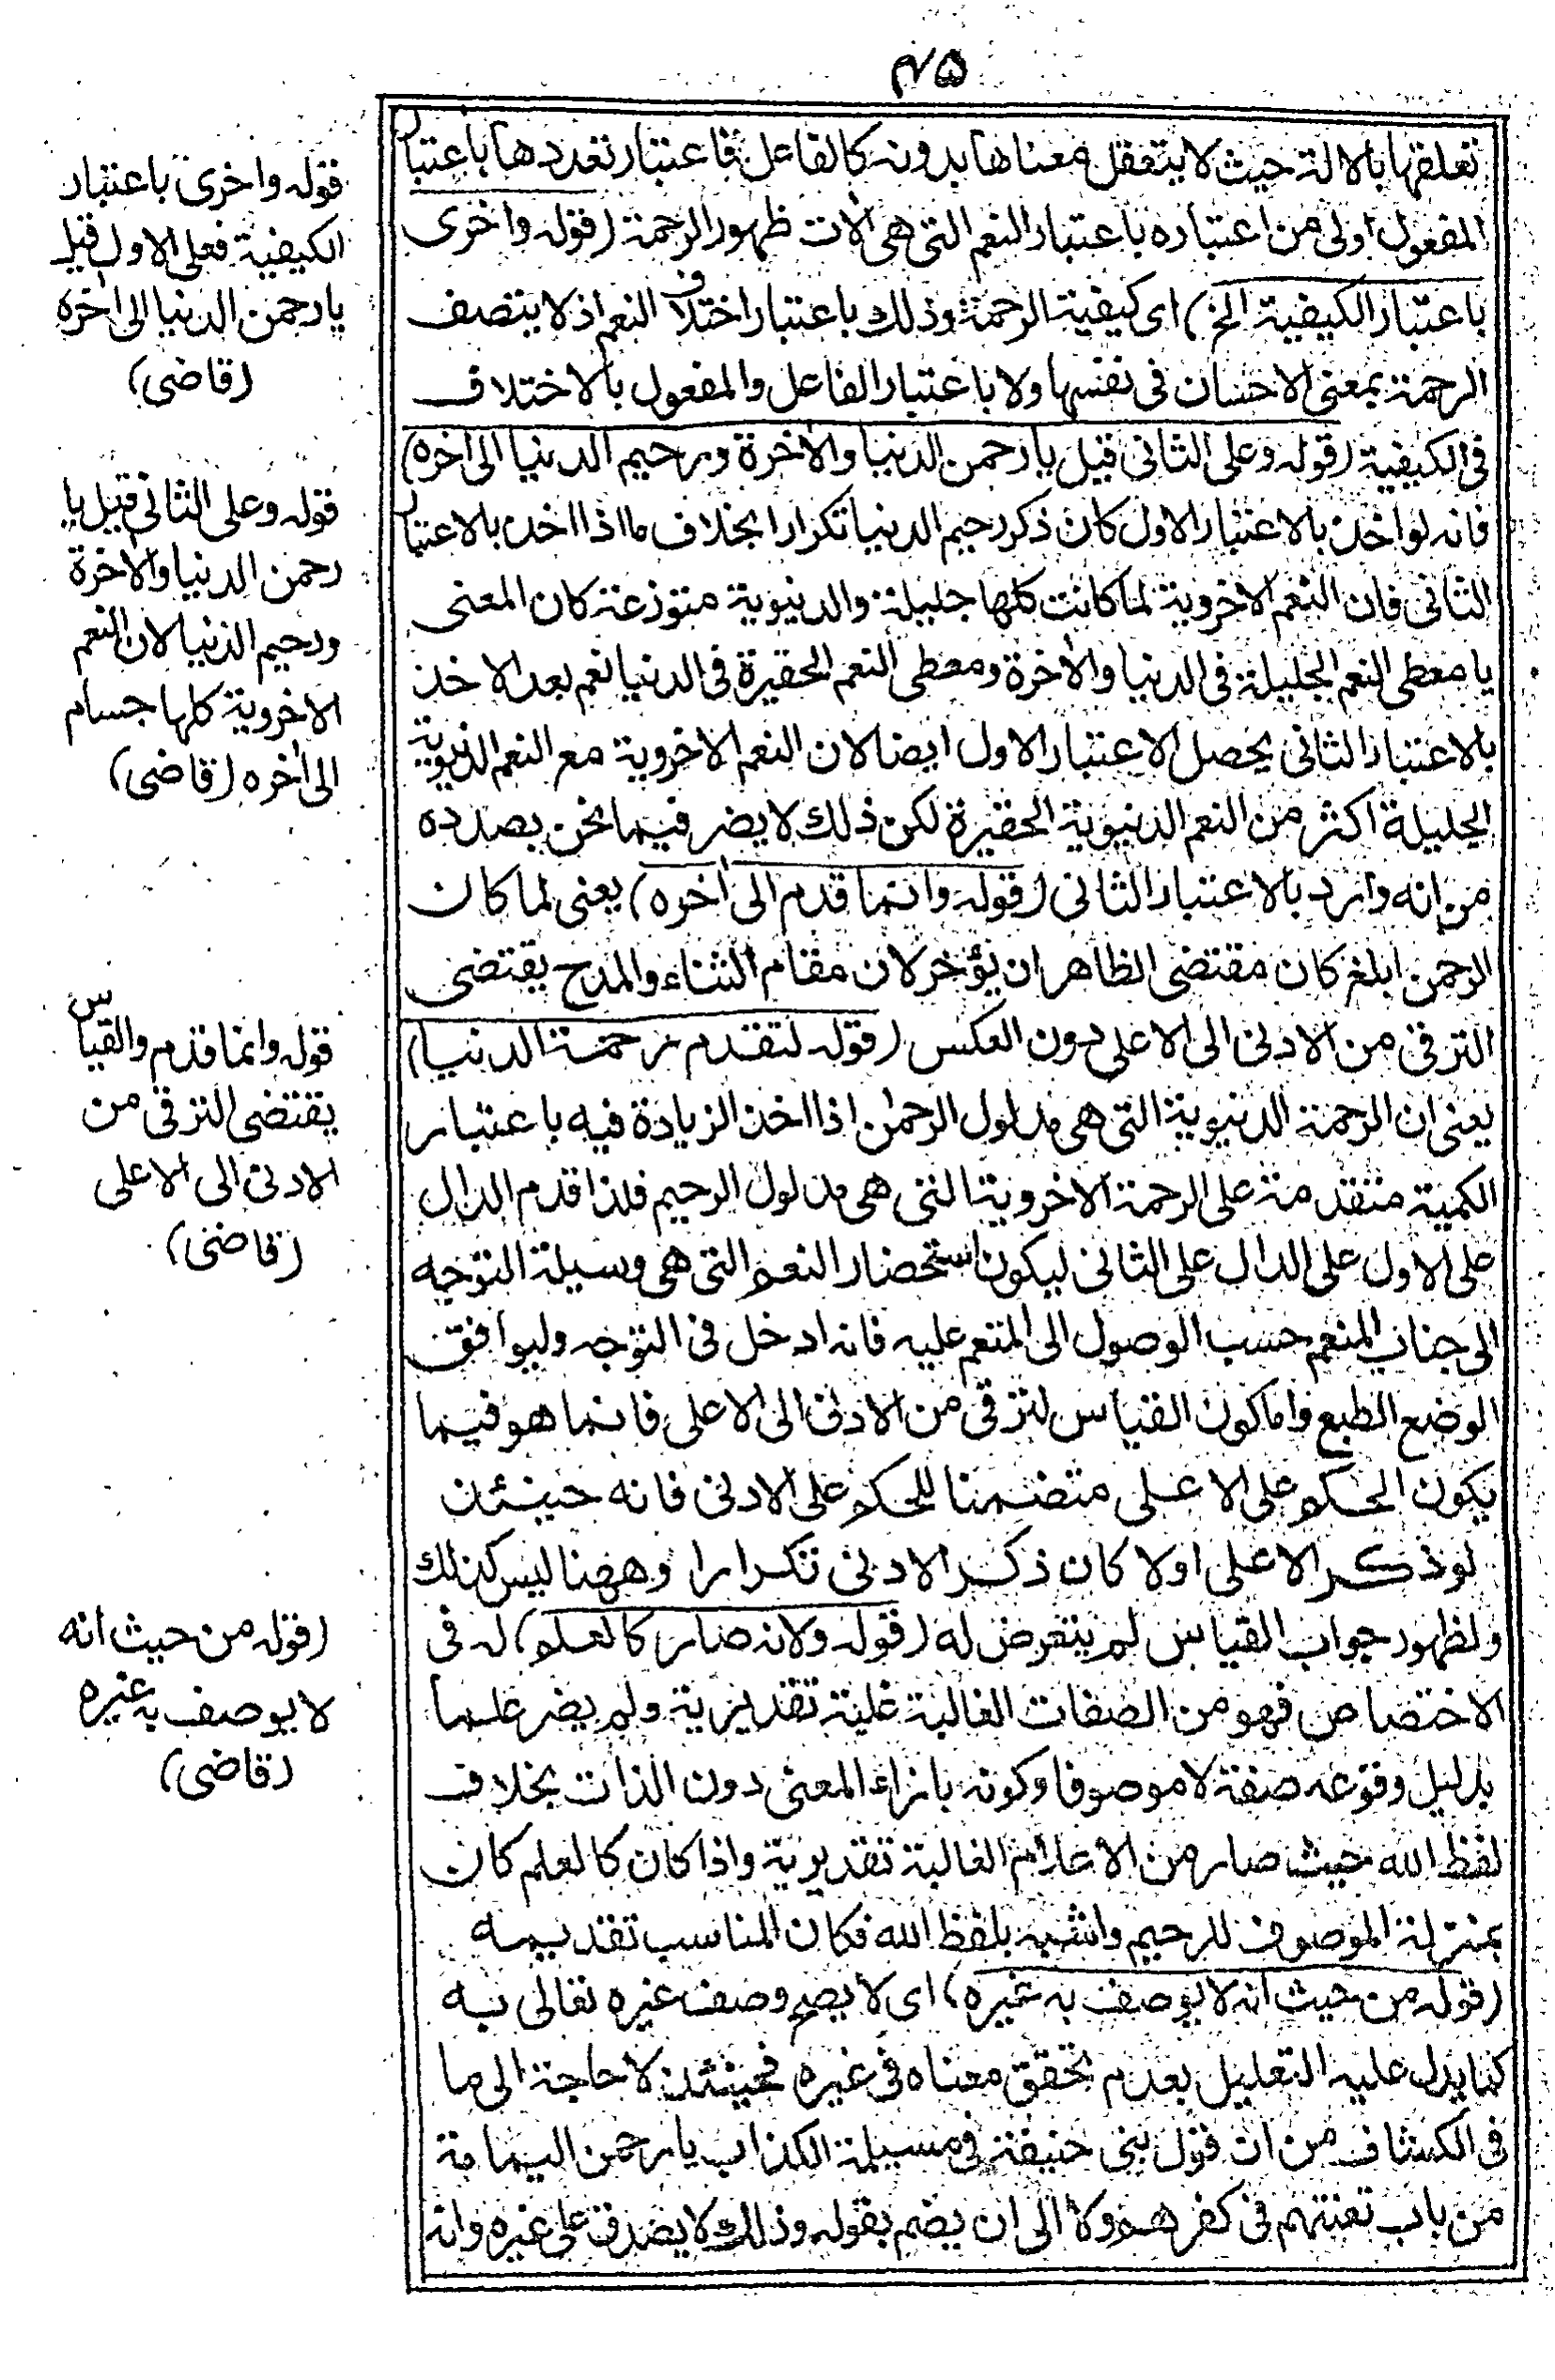 ٤٥
تعلقها بالالة حيث لا يتعقل معناها بدونه كالفاعل فاعتبار تعددها باعتبار
المفعول اولى من اعتباره باعتبار النعم التى هى الات ظهور الرحمة (قوله واخرى
باعتبار الكيفية الخ) اى كيفية الرحمة وذلك باعتبار اختلاف النعم اذ لا يتصف
الرحمة بمعنى الاحسان فى نفسها ولا باعتبار الفاعل والمفعول بالاختلاف
فى الكيفية (قوله وعلى الثانى قيل يا رحمن الدنيا والاخرة ورحيم الدنيا الى اخره)
فانه لو اخذ بالاعتبار الاول كان ذكر رحيم الدنيا تكرارا بخلاف ما اذا اخذ بالاعتبار
الثانى فان النعم الاخروية لما كانت كلها جليلة والدنيوية متوزعة كان المعنى
يا معطى النعم الجليلة فى الدنيا والاخرة ومعطى النعم الحقيرة فى الدنيا نعم بعد الاخذ
بالاعتبار الثانى يحصل الاعتبار الاول ايضا لان النعم الاخروية مع النعم الدنيوية
الجليلة اكثر من النعم الدنيوية الحقيرة لكن ذلك لا يضر فيما نحن بصدده
من انه وارد بالاعتبار الثانى (قوله وانما قدم الى اخره) يعنى لما كان
الرحمن ابلغ كان مقتضى الظاهر ان يؤخر لان مقام الثناء والمدح يقتضى
الترقى من الادنى الى الاعلى دون العكس (قوله لتقدم رحمة الدنيا)
يعنى ان الرحمة الدنيوية التى هى مدلول الرحمن اذا اخذ الزيادة فيه باعتبار
الكمية متقدمة على الرحمة الاخروية التى هى مدلول الرحيم فلذا قدم الدال
على الاول على الدال على الثانى ليكون استحضار النعم التى هى وسيلة التوجه
الى جناب المنعم حسب الوصول الى المنعم عليه فانه ادخل فى التوجه وليوافق
الوضع الطبع واما كون القياس لترقى من الادنى الى الاعلى فانما هو فيما
يكون الحكم على الاعلى متضمنا للحكم على الادنى فانه حينئذ
لو ذكر الاعلى اولا كان ذكر الادنى تكرارا وههنا ليس كذلك
ولظهور جواب القياس لم يتعرض له (قوله ولانه صار كالعلم) له فى
الاختصاص فهو من الصفات الغالبة غلبة تقديرية ولم يضر علما
بدليل وقوعه صفة لا موصوفا وكونه بازاء المعنى دون الذات بخلاف
لفظ الله حيث صار من الاعلام الغالبة تقديرية واذا كان كالعلم كان
بمنزلة الموصوف للرحيم واشبه بلفظ الله فكان المناسب تقديمه
(قوله من حيث انه لا يوصف به غيره) اى لا يصح وصف غيره تعالى به
كما يدل عليه التعليل بعدم تحقق معناه فى غيره فحينئذ لا حاجة الى ما
فى الكشاف من ان قول بنى حنيفة فى مسيلمة الكذاب يا رحمن اليمامة
من باب تعنتهم فى كفرهم ولا الى ان يضم بقوله وذلك لا يصدق على غيره وانه
قوله واخرى باعتبار
الكيفية فعلى الاول قيل
يا رحمن الدنيا الى اخره
(قاضى)
قوله وعلى الثانى قيل يا
رحمن الدنيا والاخرة
ورحيم الدنيا لان النعم
الاخروية كلها جسام
الى اخره (قاضى)
قوله وانما قدم والقياس
يقتضى الترقى من
الادنى الى الاعلى
(قاضى)
(قوله من حيث انه
لا يوصف به غيره
(قاضى)